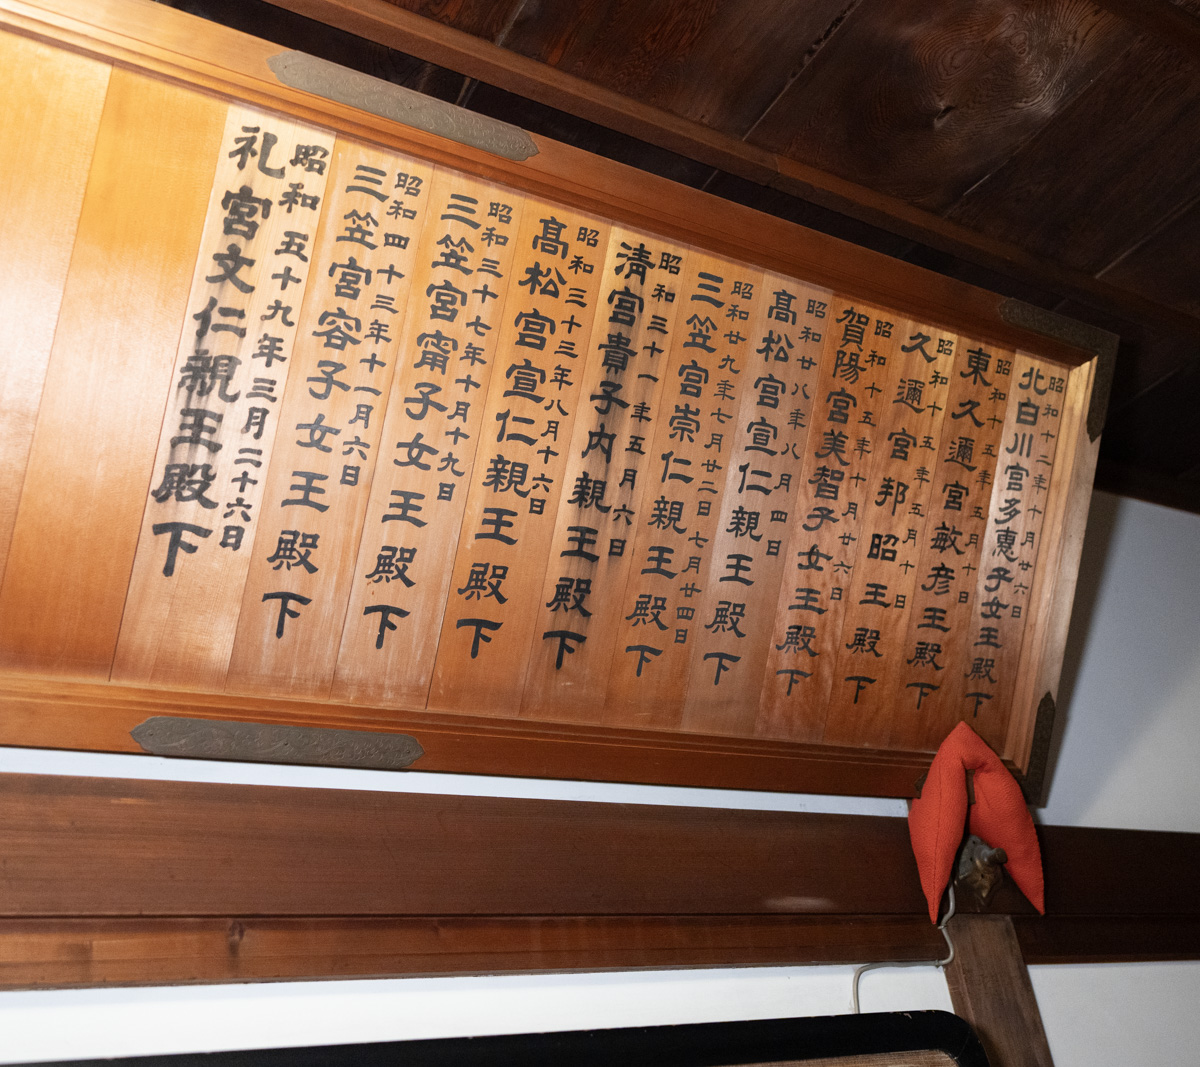 昭和十二年十月廿六日
北白川宮多惠子女王殿下
昭和十五年五月十日
東久邇宮敏彦王殿下
昭和十五年五月十日
久邇宮邦昭王殿下
昭和十五年十月廿六日
賀陽宮美智子女王殿下
昭和廿八年八月四日
髙松宮宣仁親王殿下
昭和廿九年七月廿二日七月廿四日
三笠宮崇仁親王殿下
昭和三十一年五月六日
清宮貴子内親王殿下
昭和三十三年八月十六日
髙松宮宣仁親王殿下
昭和三十七年十月十九日
三笠宮甯子女王殿下
昭和四十三年十一月六日
三笠宮容子女王殿下
昭和五十九年三月二十六日
礼宮文仁親王殿下